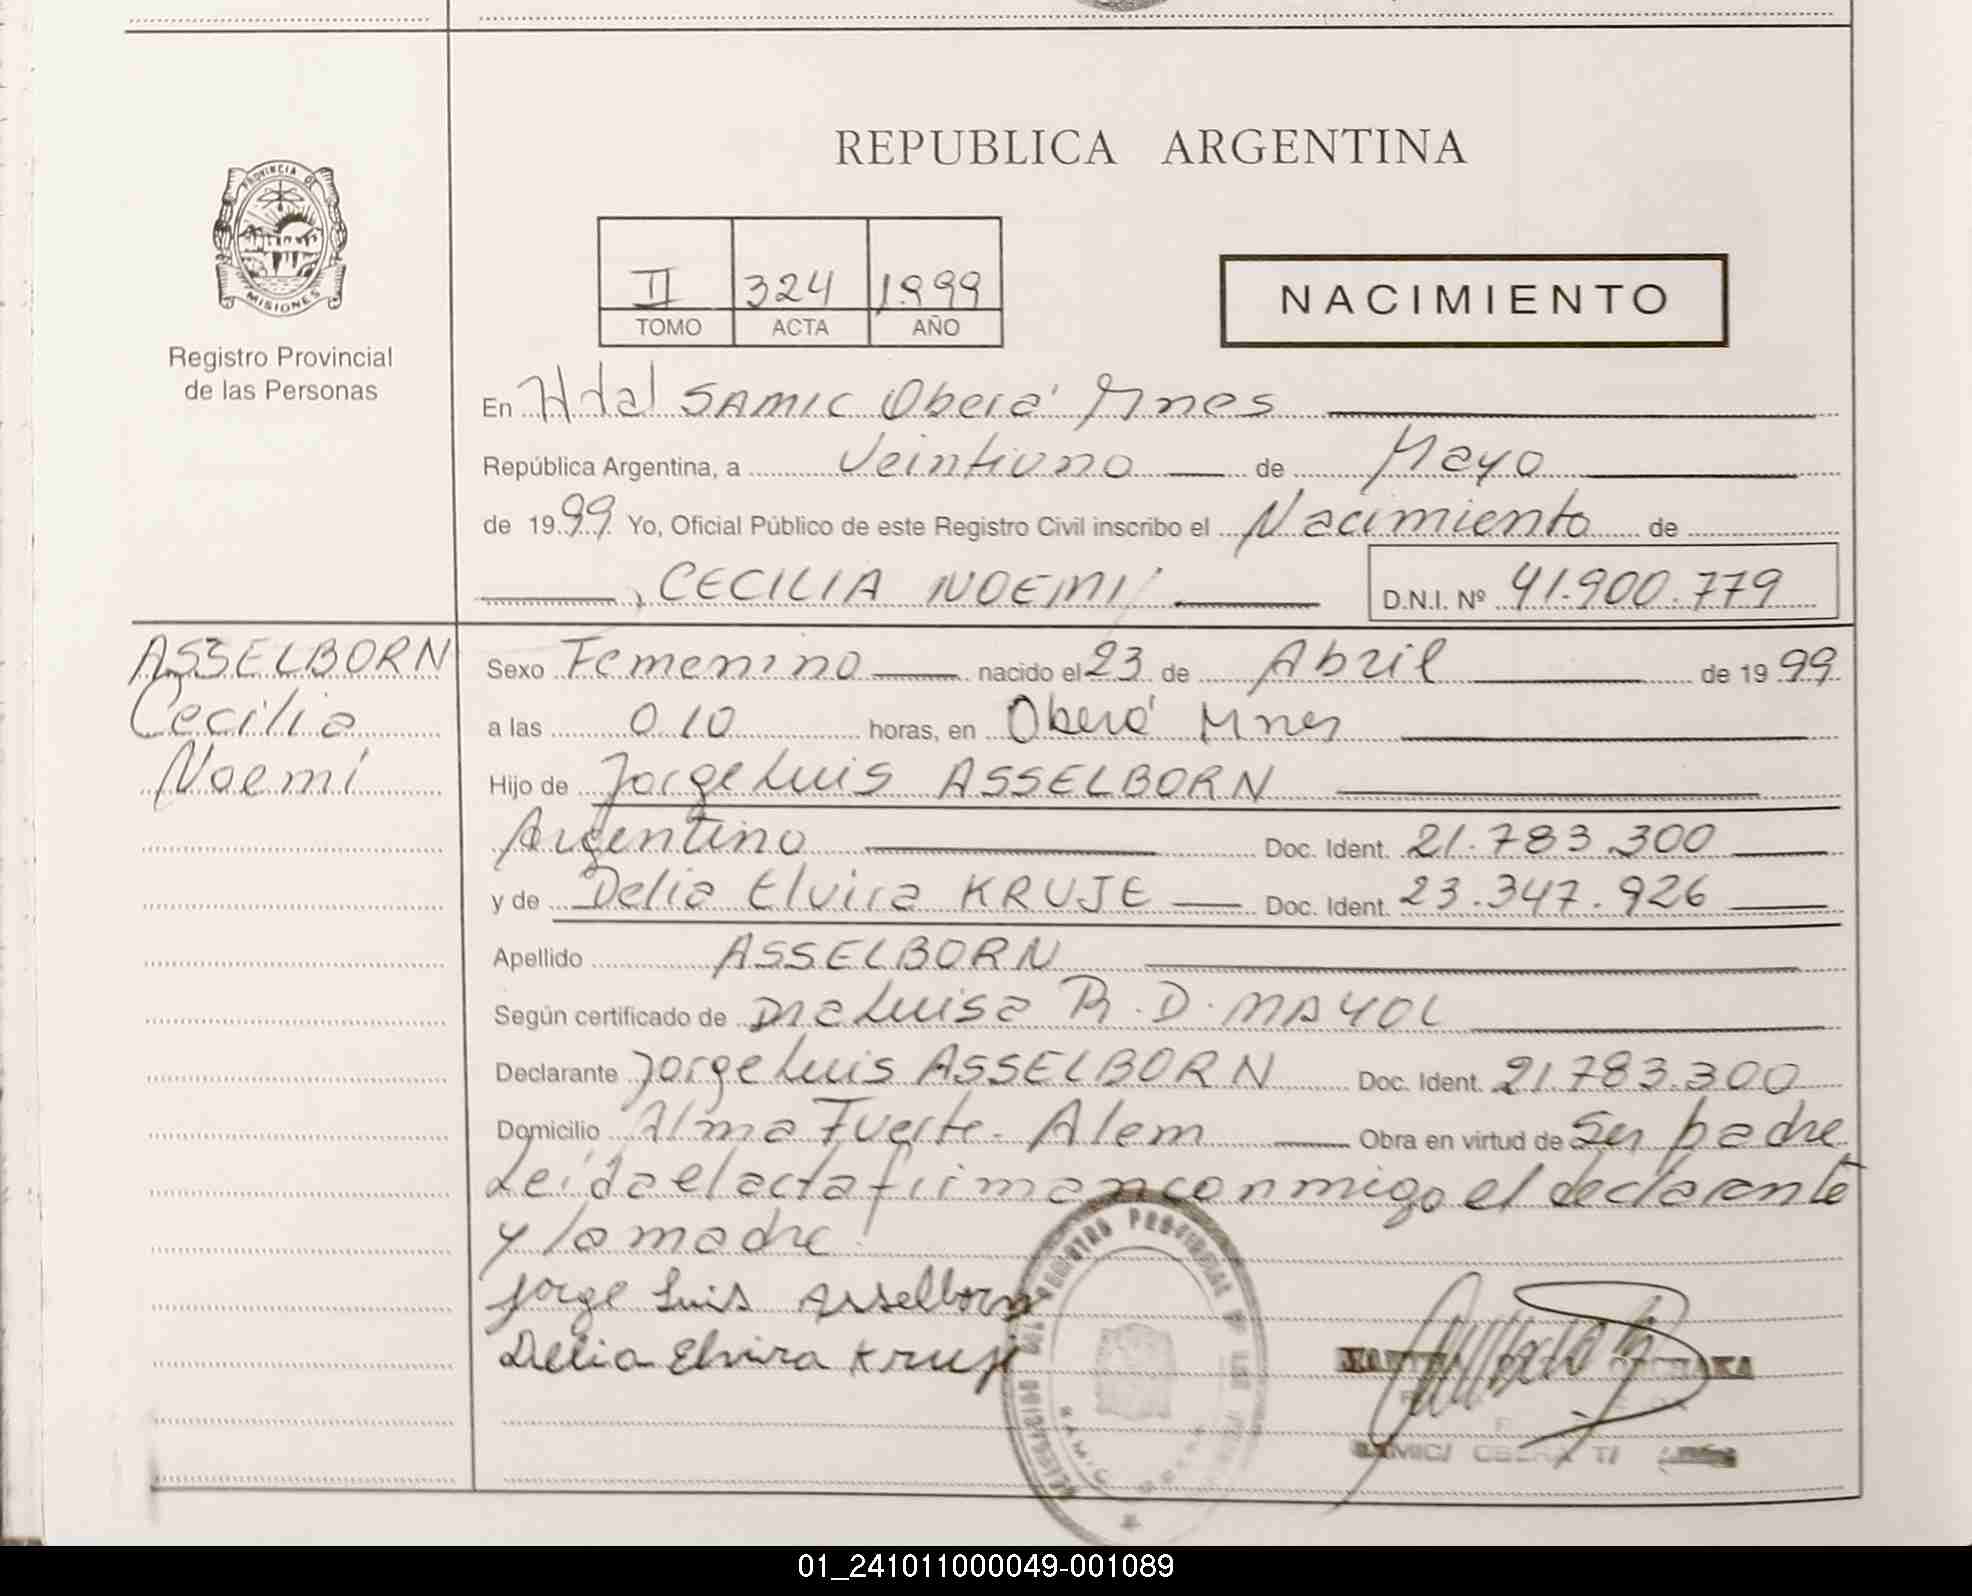 REPUBLICA ARGENTINA
PROVINCIA DE
MISIONES
Registro Provincial
de las Personas
II 324 1999
TOMO ACTA AÑO
NACIMIENTO
En Htal SAMIC Oberá Mnes
República Argentina, a Veintiuno de Mayo
de 1999 Yo, Oficial Público de este Registro Civil inscribo el Nacimiento de
, CECILIA NOEMI
D.N.I. Nº 41.900.779
ASSELBORN
Cecilia
Noemí
Sexo Femenino nacido el 23 de Abril de 1999
a las 0.10 horas, en Oberá Mnes
Hijo de Jorge Luis ASSELBORN
Argentino Doc. Ident. 21.783.300
y de Delia Elvira KRUJE Doc. Ident. 23.347.926
Apellido ASSELBORN
Según certificado de Dra Luisa R. D. MAYOL
Declarante Jorge Luis ASSELBORN Doc. Ident. 21.783.300
Domicilio Alma Fuerte - Alem Obra en virtud de Ser padre
Leída el acta firman conmigo el declarante
y la madre
Jorge Luis Asselborn
Delia Elvira Kruje
REGISTRO PROVINCIAL DE LAS
SAMIC
SAMIC/ OBERA
01_241011000049-001089